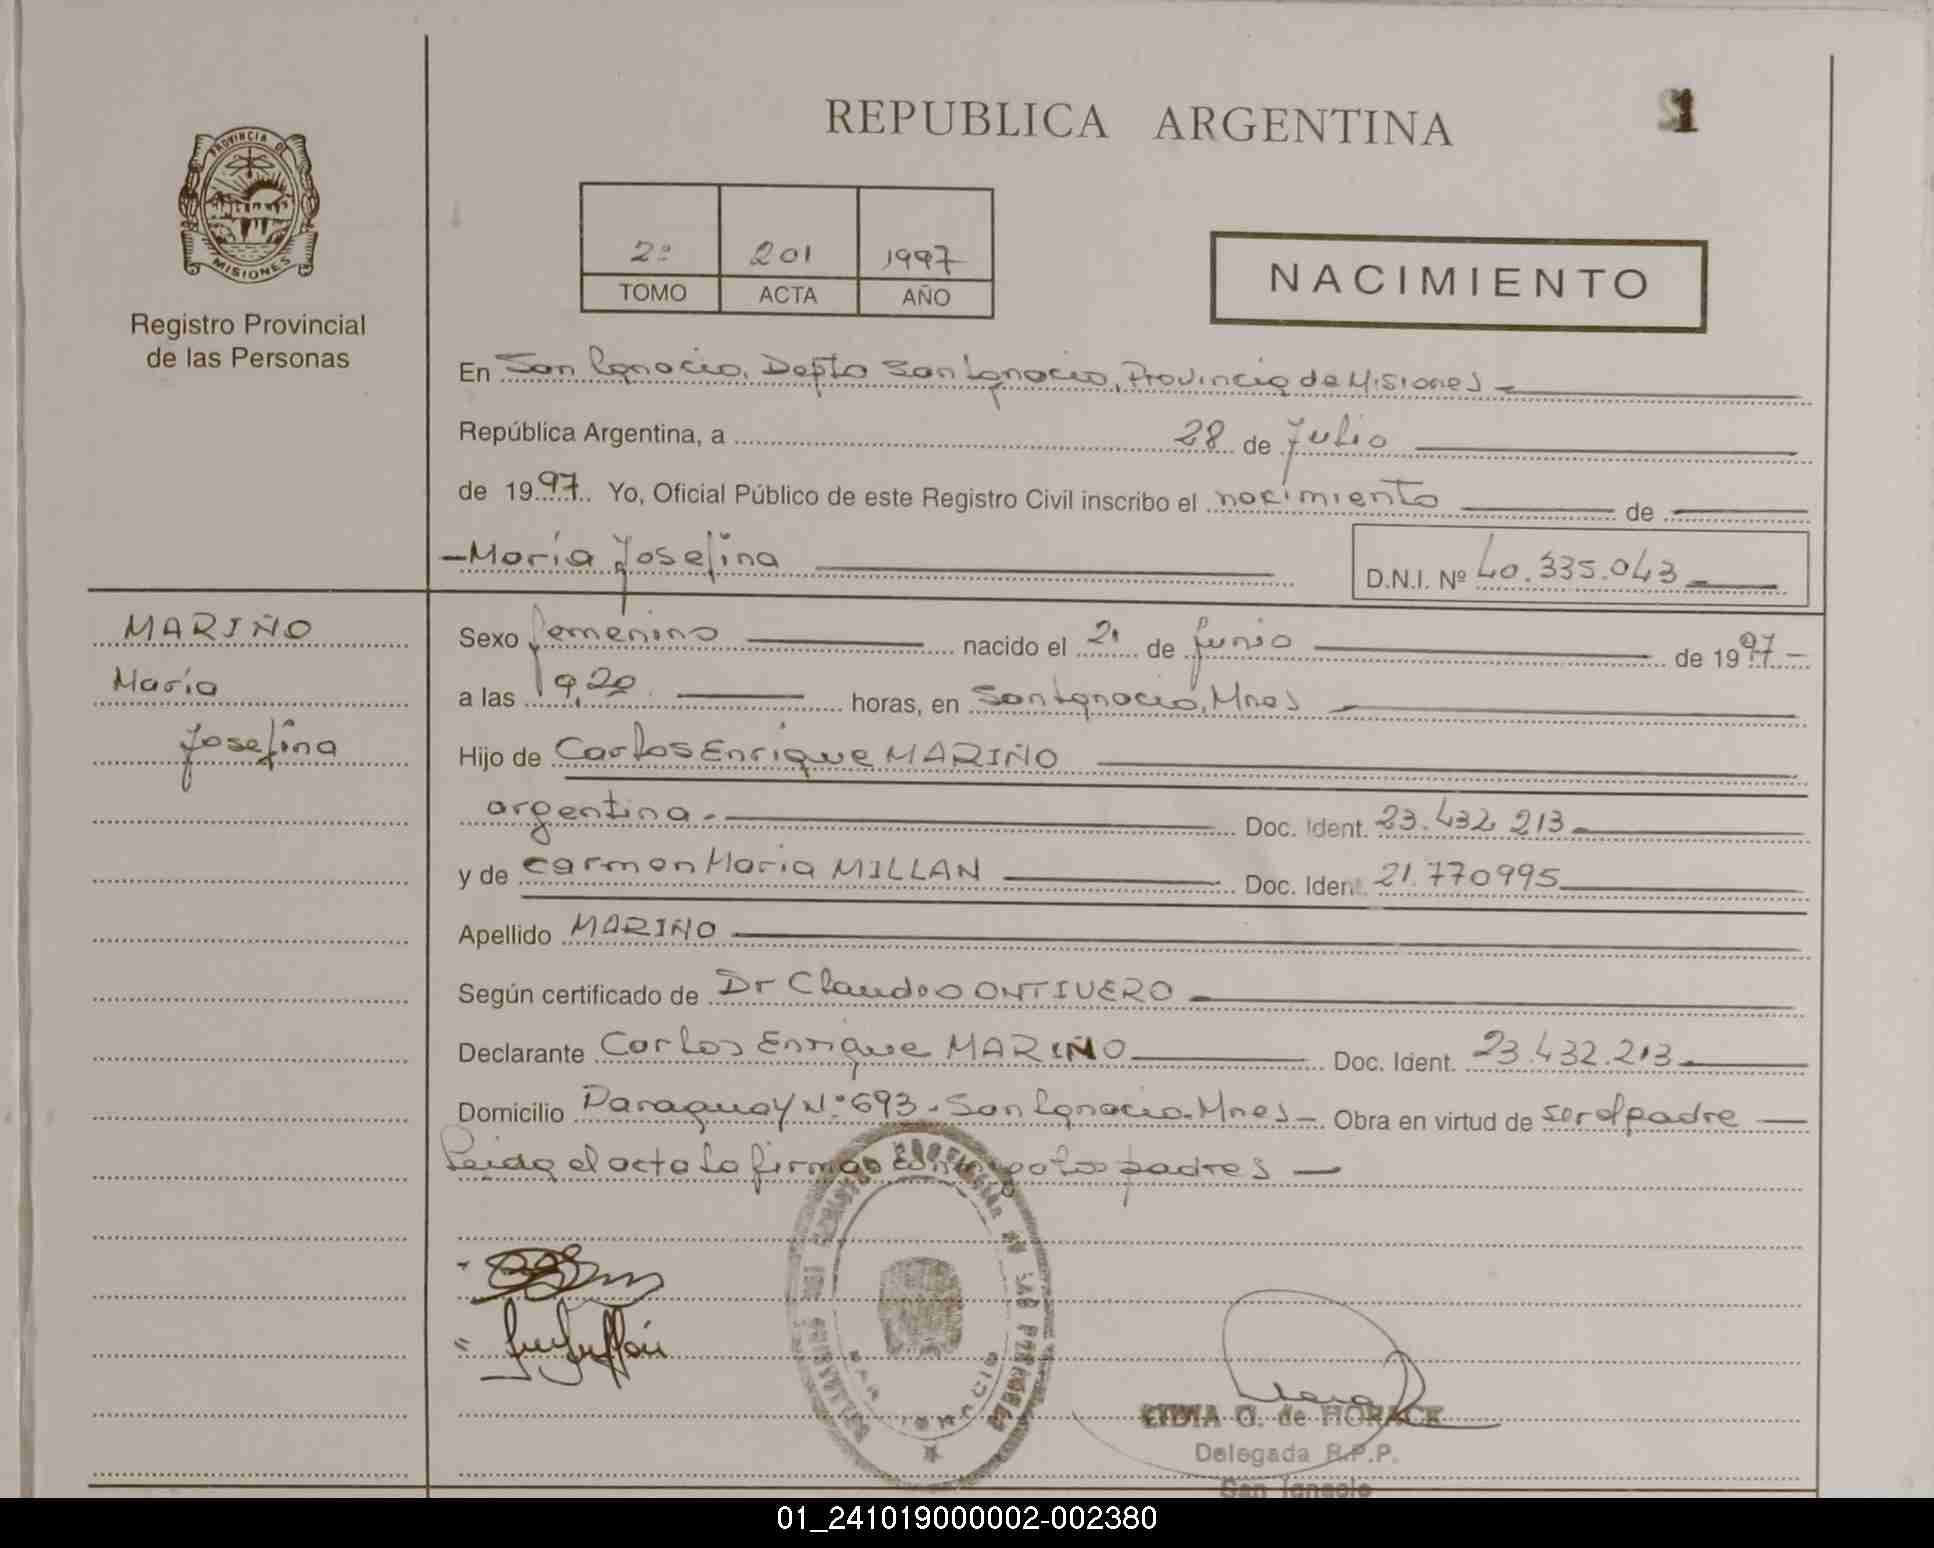 REPUBLICA ARGENTINA
1
PROVINCIA DE
MISIONES
Registro Provincial
de las Personas
2º 201 1997
TOMO ACTA AÑO
NACIMIENTO
En San Ignacio, Depto San Ignacio, Provincia de Misiones
República Argentina, a 28 de Julio
de 1997. Yo, Oficial Público de este Registro Civil inscribo el nacimiento de
María Josefina
D.N.I. Nº 40.335.043
MARIÑO
María
Josefina
Sexo femenino nacido el 21 de Junio de 1997
a las 19,20 horas, en San Ignacio, Mnes
Hijo de Carlos Enrique MARIÑO
argentina. Doc. Ident. 23.432 213
y de Carmen Maria MILLAN Doc. Ident. 21.770995
Apellido MARIÑO
Según certificado de Dr Claudio ONTIVERO
Declarante Carlos Enrique MARIÑO Doc. Ident. 23.432.213
Domicilio Paraguay Nº 693. San Ignacio. Mnes Obra en virtud de ser el padre
Leida el acta la firman conmigo los padres
LIDIA G. de HORACK
Delegada R.P.P.
San Ignacio
01_241019000002-002380